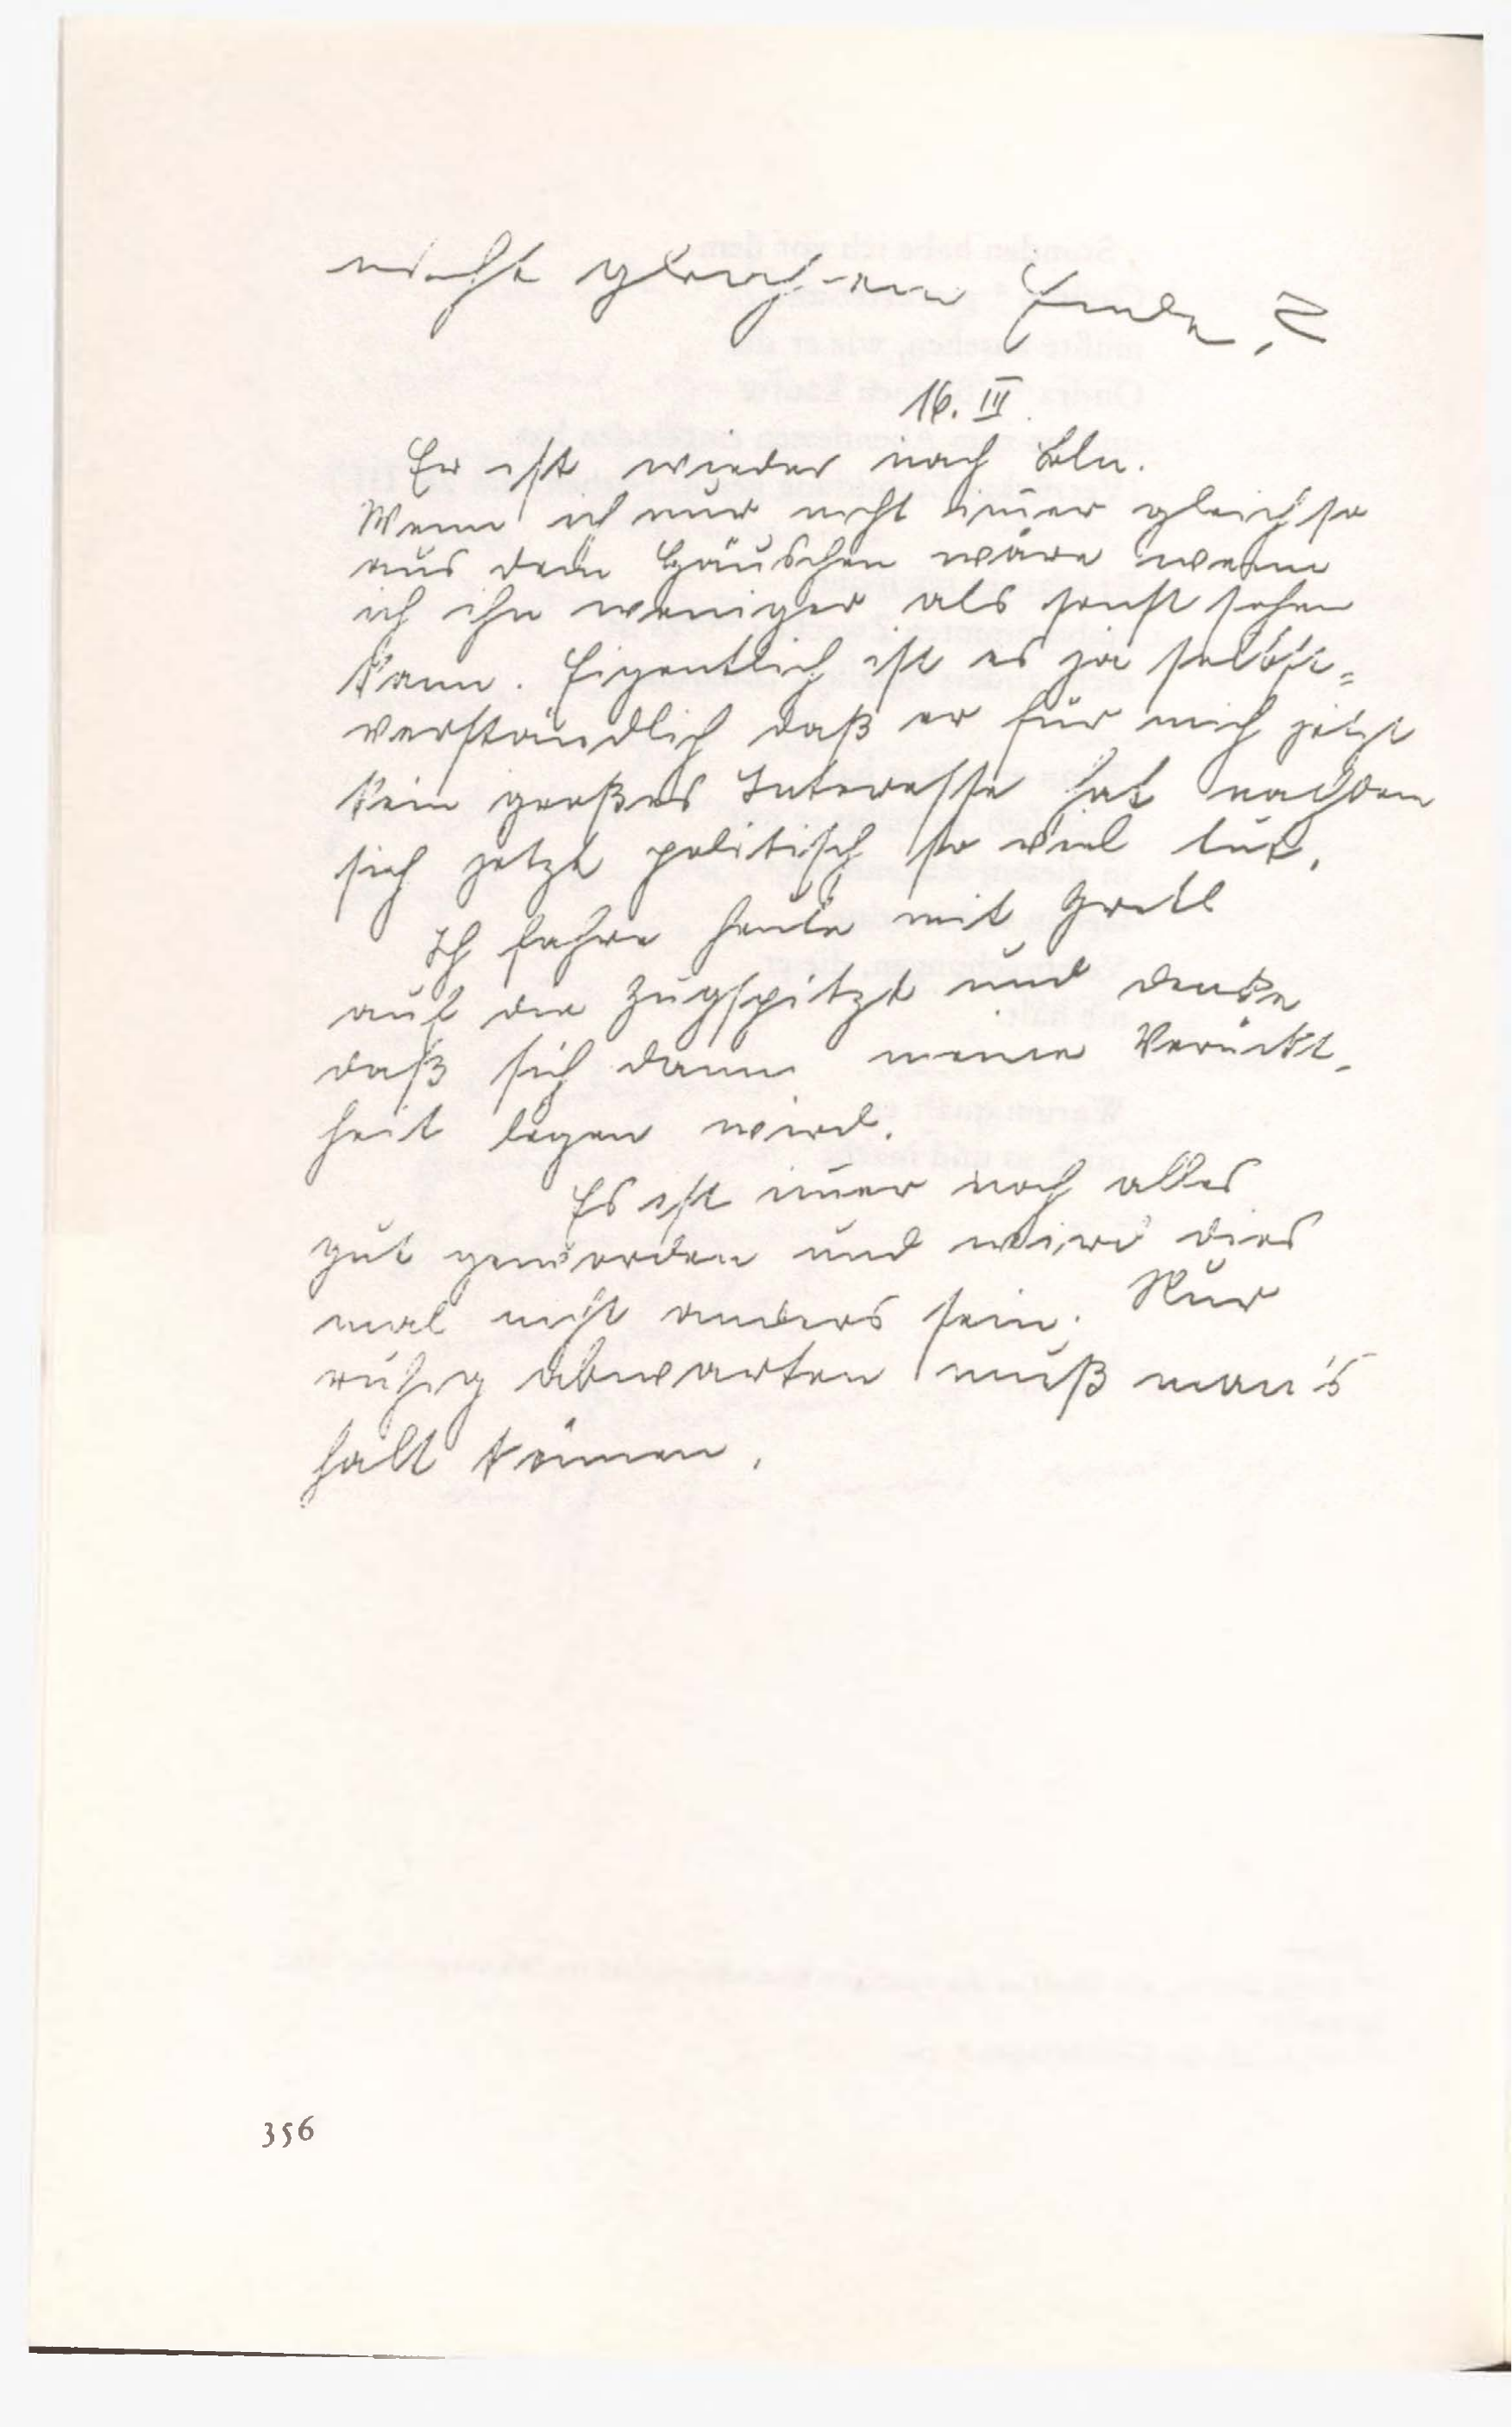 nicht gleich ein Ende?
16. III.
Er ist wieder nach Bln.
Wenn ich nur nicht im̄er gleich so
aus dem Häuschen wäre wenn
ich ihn weniger als sonst sehen
kann. Eigentlich ist es ja selbst=
verständlich daß er für mich jetzt
kein großes Interesse hat nachdem
sich jetzt politisch so viel tut.
Ich fahre heute mit Gretl
auf die Zugspitze und denke
daß sich dann meine Verückt-
heit legen wird.
Es ist im̄er noch alles
gut geworden und wird dies
mal nicht anders sein. Nur
ruhig abwarten muß man's
halt können.
356